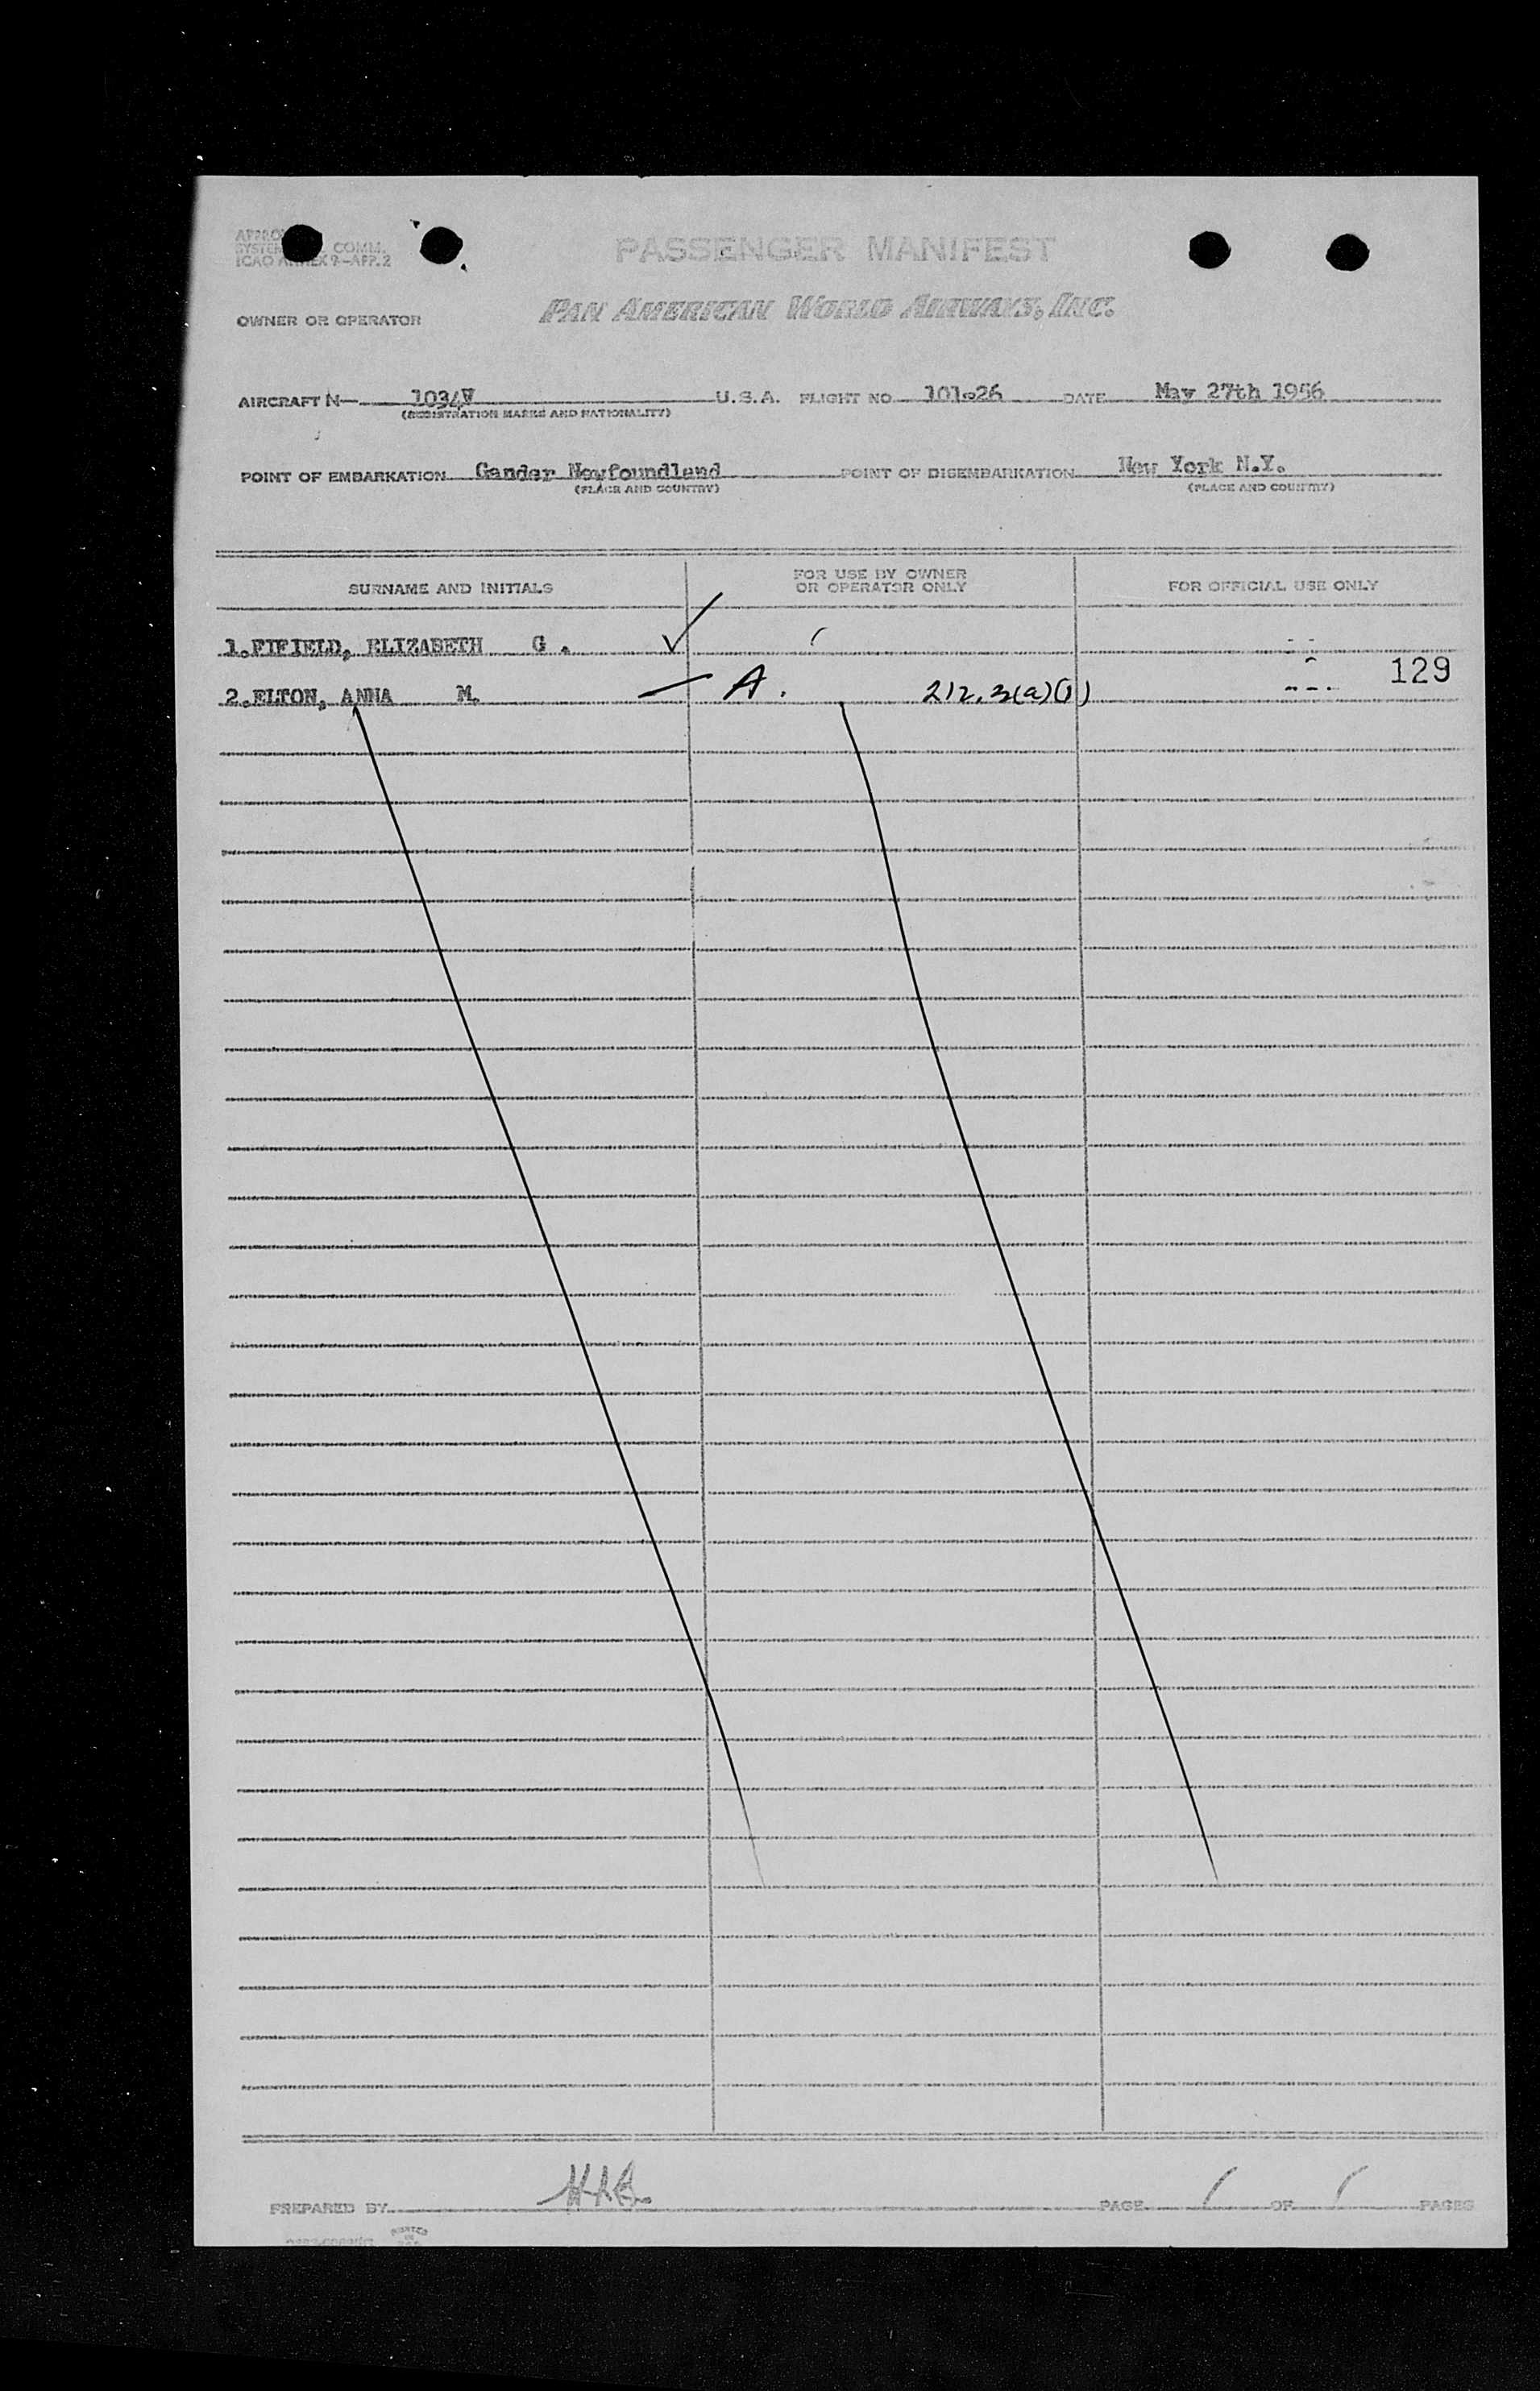 COMM.
ICAO ANNEX 9—APP. 2
PASSENGER MANIFEST
PAN AMERICAN WORLD AIRWAYS, INC.
OWNER OR OPERATOR
AIRCRAFT N— 1034V U.S.A. FLIGHT NO. 101-26 DATE May 27th 1956
(REGISTRATION MARKS AND NATIONALITY)
POINT OF EMBARKATION Gander Newfoundland POINT OF DISEMBARKATION New York N.Y.
(PLACE AND COUNTRY) (PLACE AND COUNTRY)
SURNAME AND INITIALS
FOR USE BY OWNER
OR OPERATOR ONLY
FOR OFFICIAL USE ONLY
1.FIFIELD, ELIZABETH G .
129
2.ELTON, ANNA M. — A. 212.3(a)(1)
PREPARED BY PAGE 1 OF 1 PAGES
PRINTED
IN